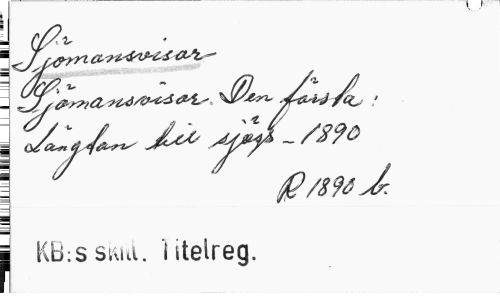 Sjömansvisor
Sjömansvisor. Den första:
Längtan till sjöss - 1890
R 1890 b.
KB:s skill. Titelreg.